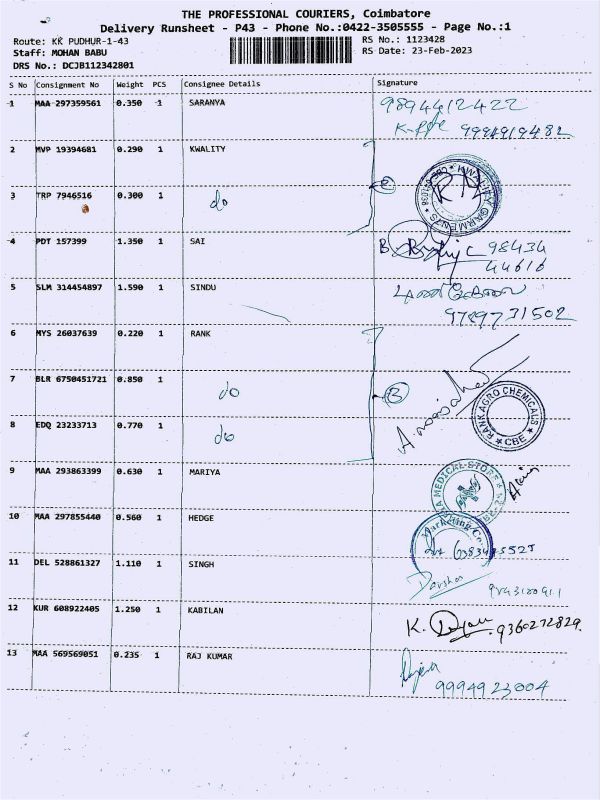 THE PROFESSIONAL COURIERS, Coimbatore
Delivery Runsheet - P43 - Phone No.:0422-3505555 - Page No.:1
Route: KK PUDHUR-1-43 RS No.: 1123428
Staff: MOHAN BABU RS Date: 23-Feb-2023
DRS No.: DCJB112342801
S No Consignment No Weight PCS Consignee Details Signature
1 MAA 297359561 0.350 1 SARANYA 9894412422
9994919482
2 MVP 19394681 0.290 1 KWALITY
3 TRP 7946516 0.300 1 do
4 PDT 157399 1.350 1 SAI 98434
44616
5 SLM 314454897 1.590 1 SINDU
9789731502
6 MYS 26037639 0.220 1 RANK
7 BLR 6750451721 0.850 1 do 3
8 EDQ 23233713 0.770 1 do RANK AGRO CHEMICALS ★ CBE ★
9 MAA 293863399 0.630 1 MARIYA MEDICAL STORE
10 MAA 297855440 0.560 1 HEDGE Marketing
11 DEL 528861327 1.110 1 SINGH Darshan
12 KUR 608922405 1.250 1 KABILAN K. 9360272829.
13 MAA 569569051 0.235 1 RAJ KUMAR
9994923004